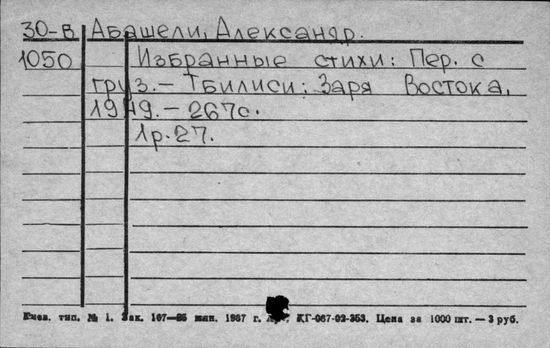 30-В Абашели, Александр.
1050 Избранные стихи: Пер. с
груз.— Тбилиси: Заря Востока,
1949.— 267с.
1р.27.
Киев. тип. № 1. Зак. 107—85 мил. 1987 г. КГ-067-02-353. Цена за 1000 шт. — 3 руб.